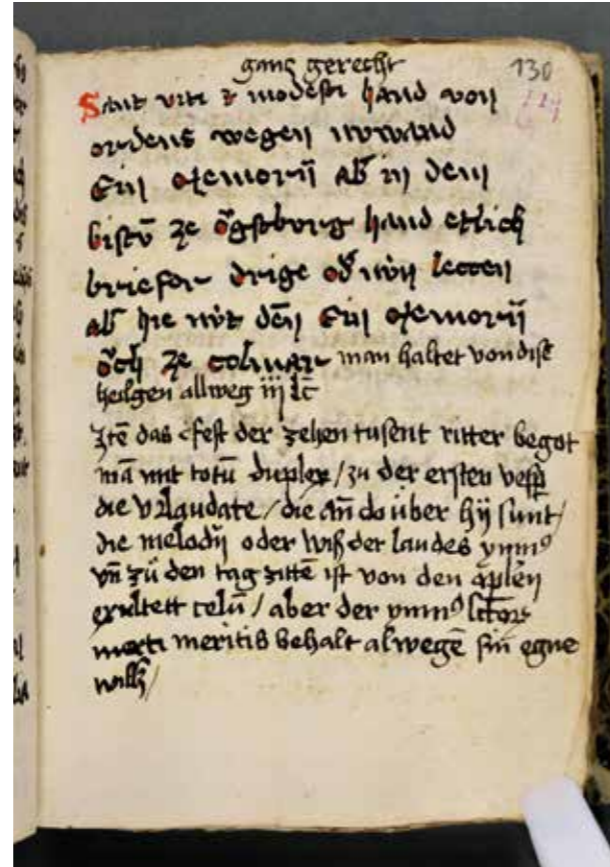 gantz gerecht
130
Sant viti ⁊ modesti hand von
ordens wegen nvwand
Ein memorij ab in dem
bistū ze ogspurg hand etlich
briefer drige od nvn leccen
ab hie nvt den Ein memorij
och ze colmar man haltet von dise
heilgen allweg iij lc̄
ztē das fest der zehen tusent ritter begot
mā mit totū duplex / zu der ersten vesp
die v laudate / die an do über hij sunt /
die melodij oder wiß der laudes ymnꝰ
vn̄ zu den tag zittē ist von den aplen
exultett celū / aber der ymnꝰ
meritis behalt alwegē sin egne